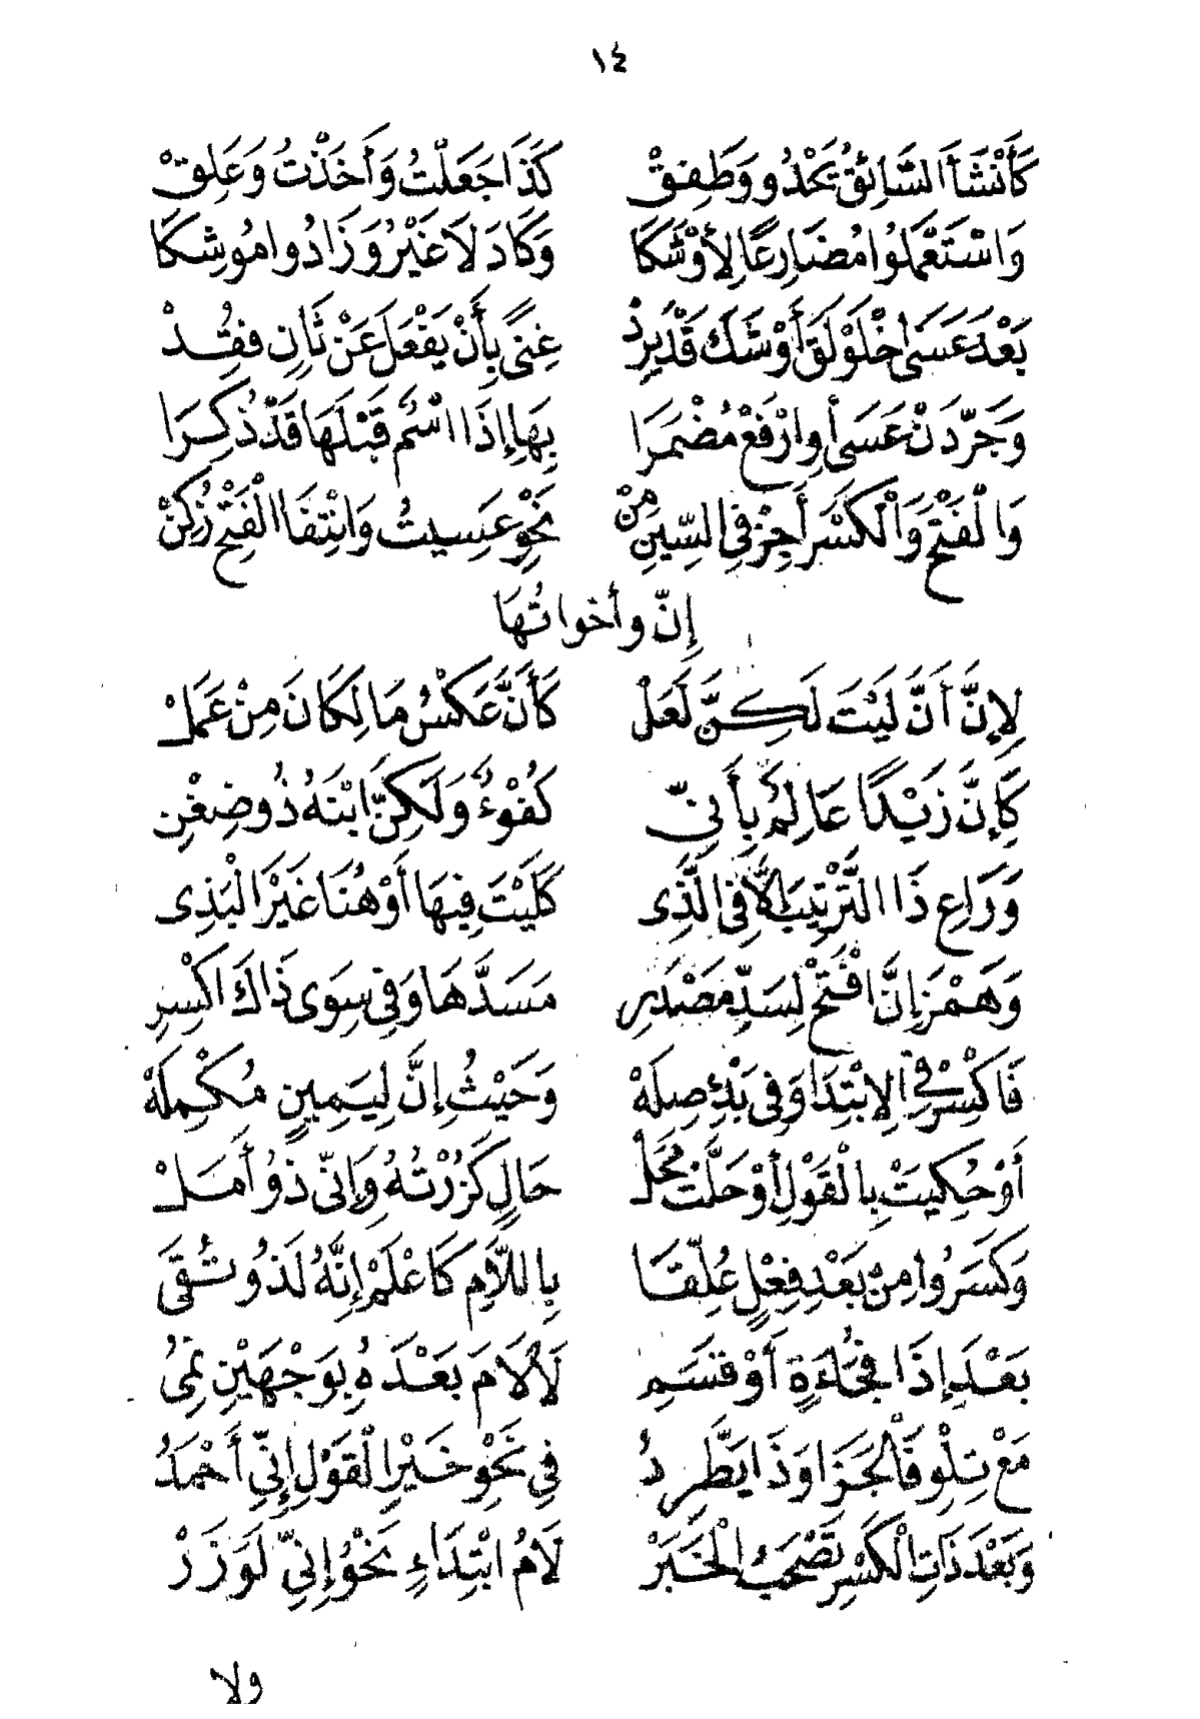 ١٤
كَأَنْشَأَ السَّائِقُ يَحْدُو وَطَفِقْ كَذَا جَعَلْتُ وَأَخَذْتُ وَعَلِقْ
وَاسْتَعْمَلُوا مُضَارِعًا لِأَوْشَكَا وَكَادَ لَا غَيْرُ وَزَادُوا مُوشِكَا
بَعْدَ عَسَى اخْلَوْلَقَ أَوْشَكَ قَدْ يَرِدْ غِنًى بِأَنْ يَفْعَلَ عَنْ ثَانٍ فُقِدْ
وَجَرِّدَنْ عَسَى أَوِ ارْفَعْ مُضْمَرَا بِهَا إِذَا اسْمٌ قَبْلَهَا قَدْ ذُكِرَا
وَالْفَتْحَ وَالْكَسْرَ أَجِزْ فِي السِّينِ مِنْ نَحْوِ عَسِيتُ وَانْتِقَا الْفَتْحِ زُكِنْ
إِنّ وأخواتُها
لِإِنَّ أَنَّ لَيْتَ لَكِنَّ لَعَلّْ كَأَنَّ عَكْسُ مَا لِكَانَ مِنْ عَمَلْ
كَإِنَّ زَيْدًا عَالِمٌ بِأَنِّي كُفْوٌ وَلَكِنَّ ابْنَهُ ذُو ضِغْنِ
وَرَاعِ ذَا التَّرْتِيبَ إِلَّا فِي الَّذِي كَلَيْتَ فِيهَا أَوْ هُنَا غَيْرَ الْبَذِي
وَهَمْزَ إِنَّ افْتَحْ لِسَدِّ مَصْدَرِ مَسَدَّهَا وَفِي سِوَى ذَاكَ اكْسِرِ
فَاكْسِرْ فِي الِابْتِدَا وَفِي بَدْءِ صِلَهْ وَحَيْثُ إِنَّ لِيَمِينٍ مُكْمِلَهْ
أَوْ حُكِيَتْ بِالْقَوْلِ أَوْ حَلَّتْ مَحَلّْ حَالٍ كَزُرْتُهُ وَإِنِّي ذُو أَمَلْ
وَكَسَرُوا مِنْ بَعْدِ فِعْلٍ عُلِّقَا بِاللَّامِ كَاعْلَمْ إِنَّهُ لَذُو تُقَى
بَعْدَ إِذَا فُجَاءَةٍ أَوْ قَسَمِ لَا لَامَ بَعْدَهُ بِوَجْهَيْنِ نُمِي
مَعْ تِلْوِ فَا الْجَزَا وَذَا يَطَّرِدُ فِي نَحْوِ خَيْرُ الْقَوْلِ إِنِّي أَحْمَدُ
وَبَعْدَ ذَاتِ الْكَسْرِ تَصْحَبُ الْخَبَرْ لَامُ ابْتِدَاءٍ نَحْوُ إِنِّي لَوَزَرْ
ولا